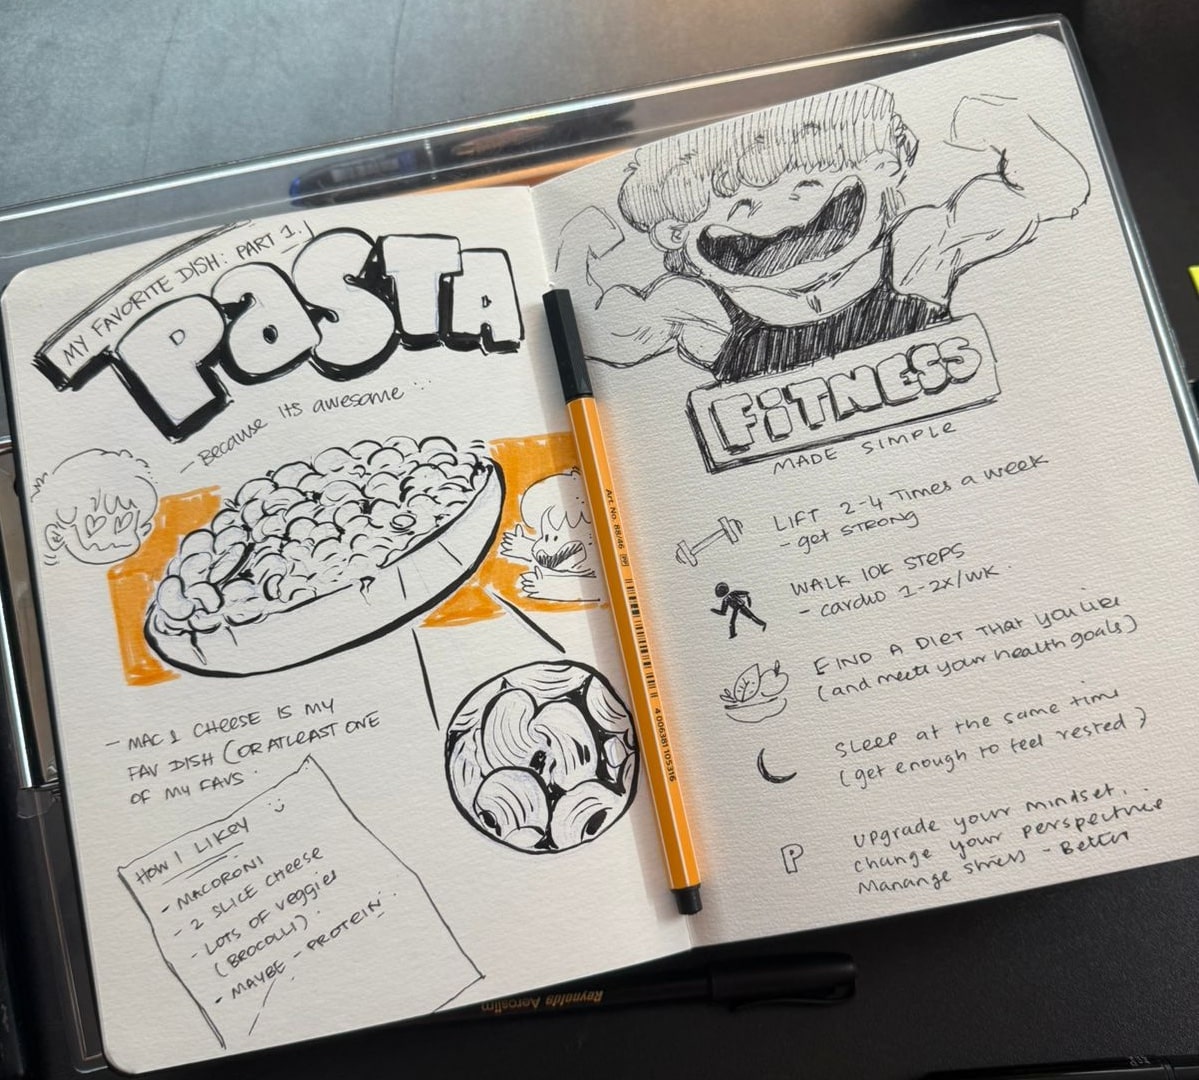 MY FAVORITE DISH: PART 1.
PASTA
- BECAUSE ITS awesome...
- MAC & CHEESE IS MY
FAV DISH (OR ATLEAST ONE
OF MY FAVS.
HOW I LIKEY :)
- MACORONI
- 2 SLICE CHEESE
- LOTS OF veggies
(BROCOLLI).
- MAYBE - PROTEIN.
Art. No. 88/46
4 006381 105316
FITNESS
MADE SIMPLE
LIFT 2-4 Times a week
- get STRONG
WALK 10K STEPS
- cardio 1-2x/wk.
FIND A DIET THAT YOU LIKE
(and meets your health goals)
Sleep at the same time
(get enough to feel rested)
P
Upgrade your mindset.
change your perspective
Manange stress - Better
Reynolds Aeroslim